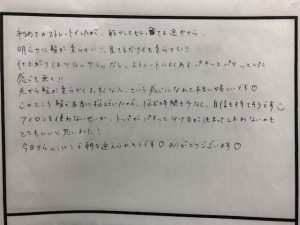 初めてのストレートでしたが、乾かしてもらってる途中から、
明らかに髪が柔らかい!! 見てるだけでも柔らかい!!
仕上がりもツルツルサラサラだし、ストレートによくあるパキッとパリッとした
感じも無く!!
元から髪が柔らかくまとまってる、という感じになれて本当に嬉しいです☺
このところ髪に本当に悩んでいたので、悩む時間も少なく、自信も持てそうです☺
アイロンを使わないせいか、トップがパキッと分け目が決まってしまわないのも
とてもいいと思いました!
今日からルンルンで朝を迎えられそうです☺ ありがとうございます☺